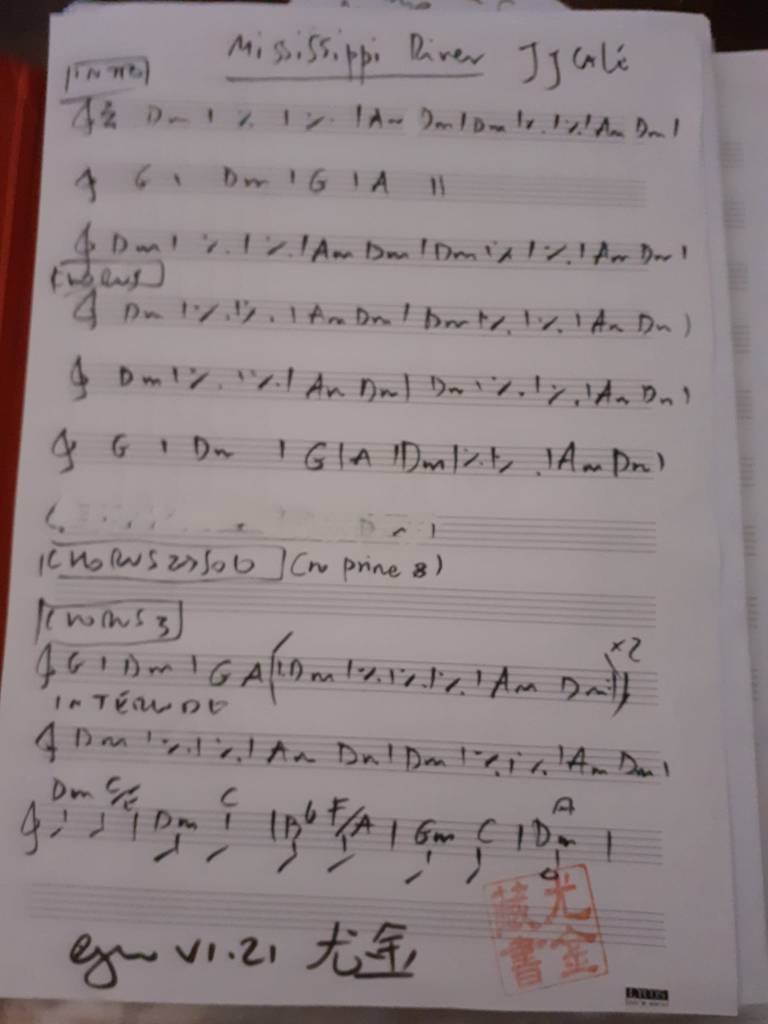 Mississippi River JJ Cale
INTRO
Dm | ٪ | ٪ | Am Dm | Dm | ٪ | ٪ | Am Dm |
G | Dm | G | A ||
Dm | ٪ | ٪ | Am Dm | Dm | ٪ | ٪ | Am Dm |
CHORUS
Dm | ٪ | ٪ | Am Dm | Dm | ٪ | ٪ | Am Dm |
Dm | ٪ | ٪ | Am Dm | Dm | ٪ | ٪ | Am Dm |
G | Dm | G | A | Dm | ٪ | ٪ | Am Dm |
CHORUS 2 > SOLO
CHORUS 3
G | Dm | G A (: Dm | ٪ | ٪ | ٪ | Am Dm :) x2
INTERLUDE
Dm | ٪ | ٪ | Am Dm | Dm | ٪ | ٪ | Am Dm |
Dm C/E | Dm C | Bb F/A | Gm C | Dm A |
VI.21 尤金
尤金
藏書